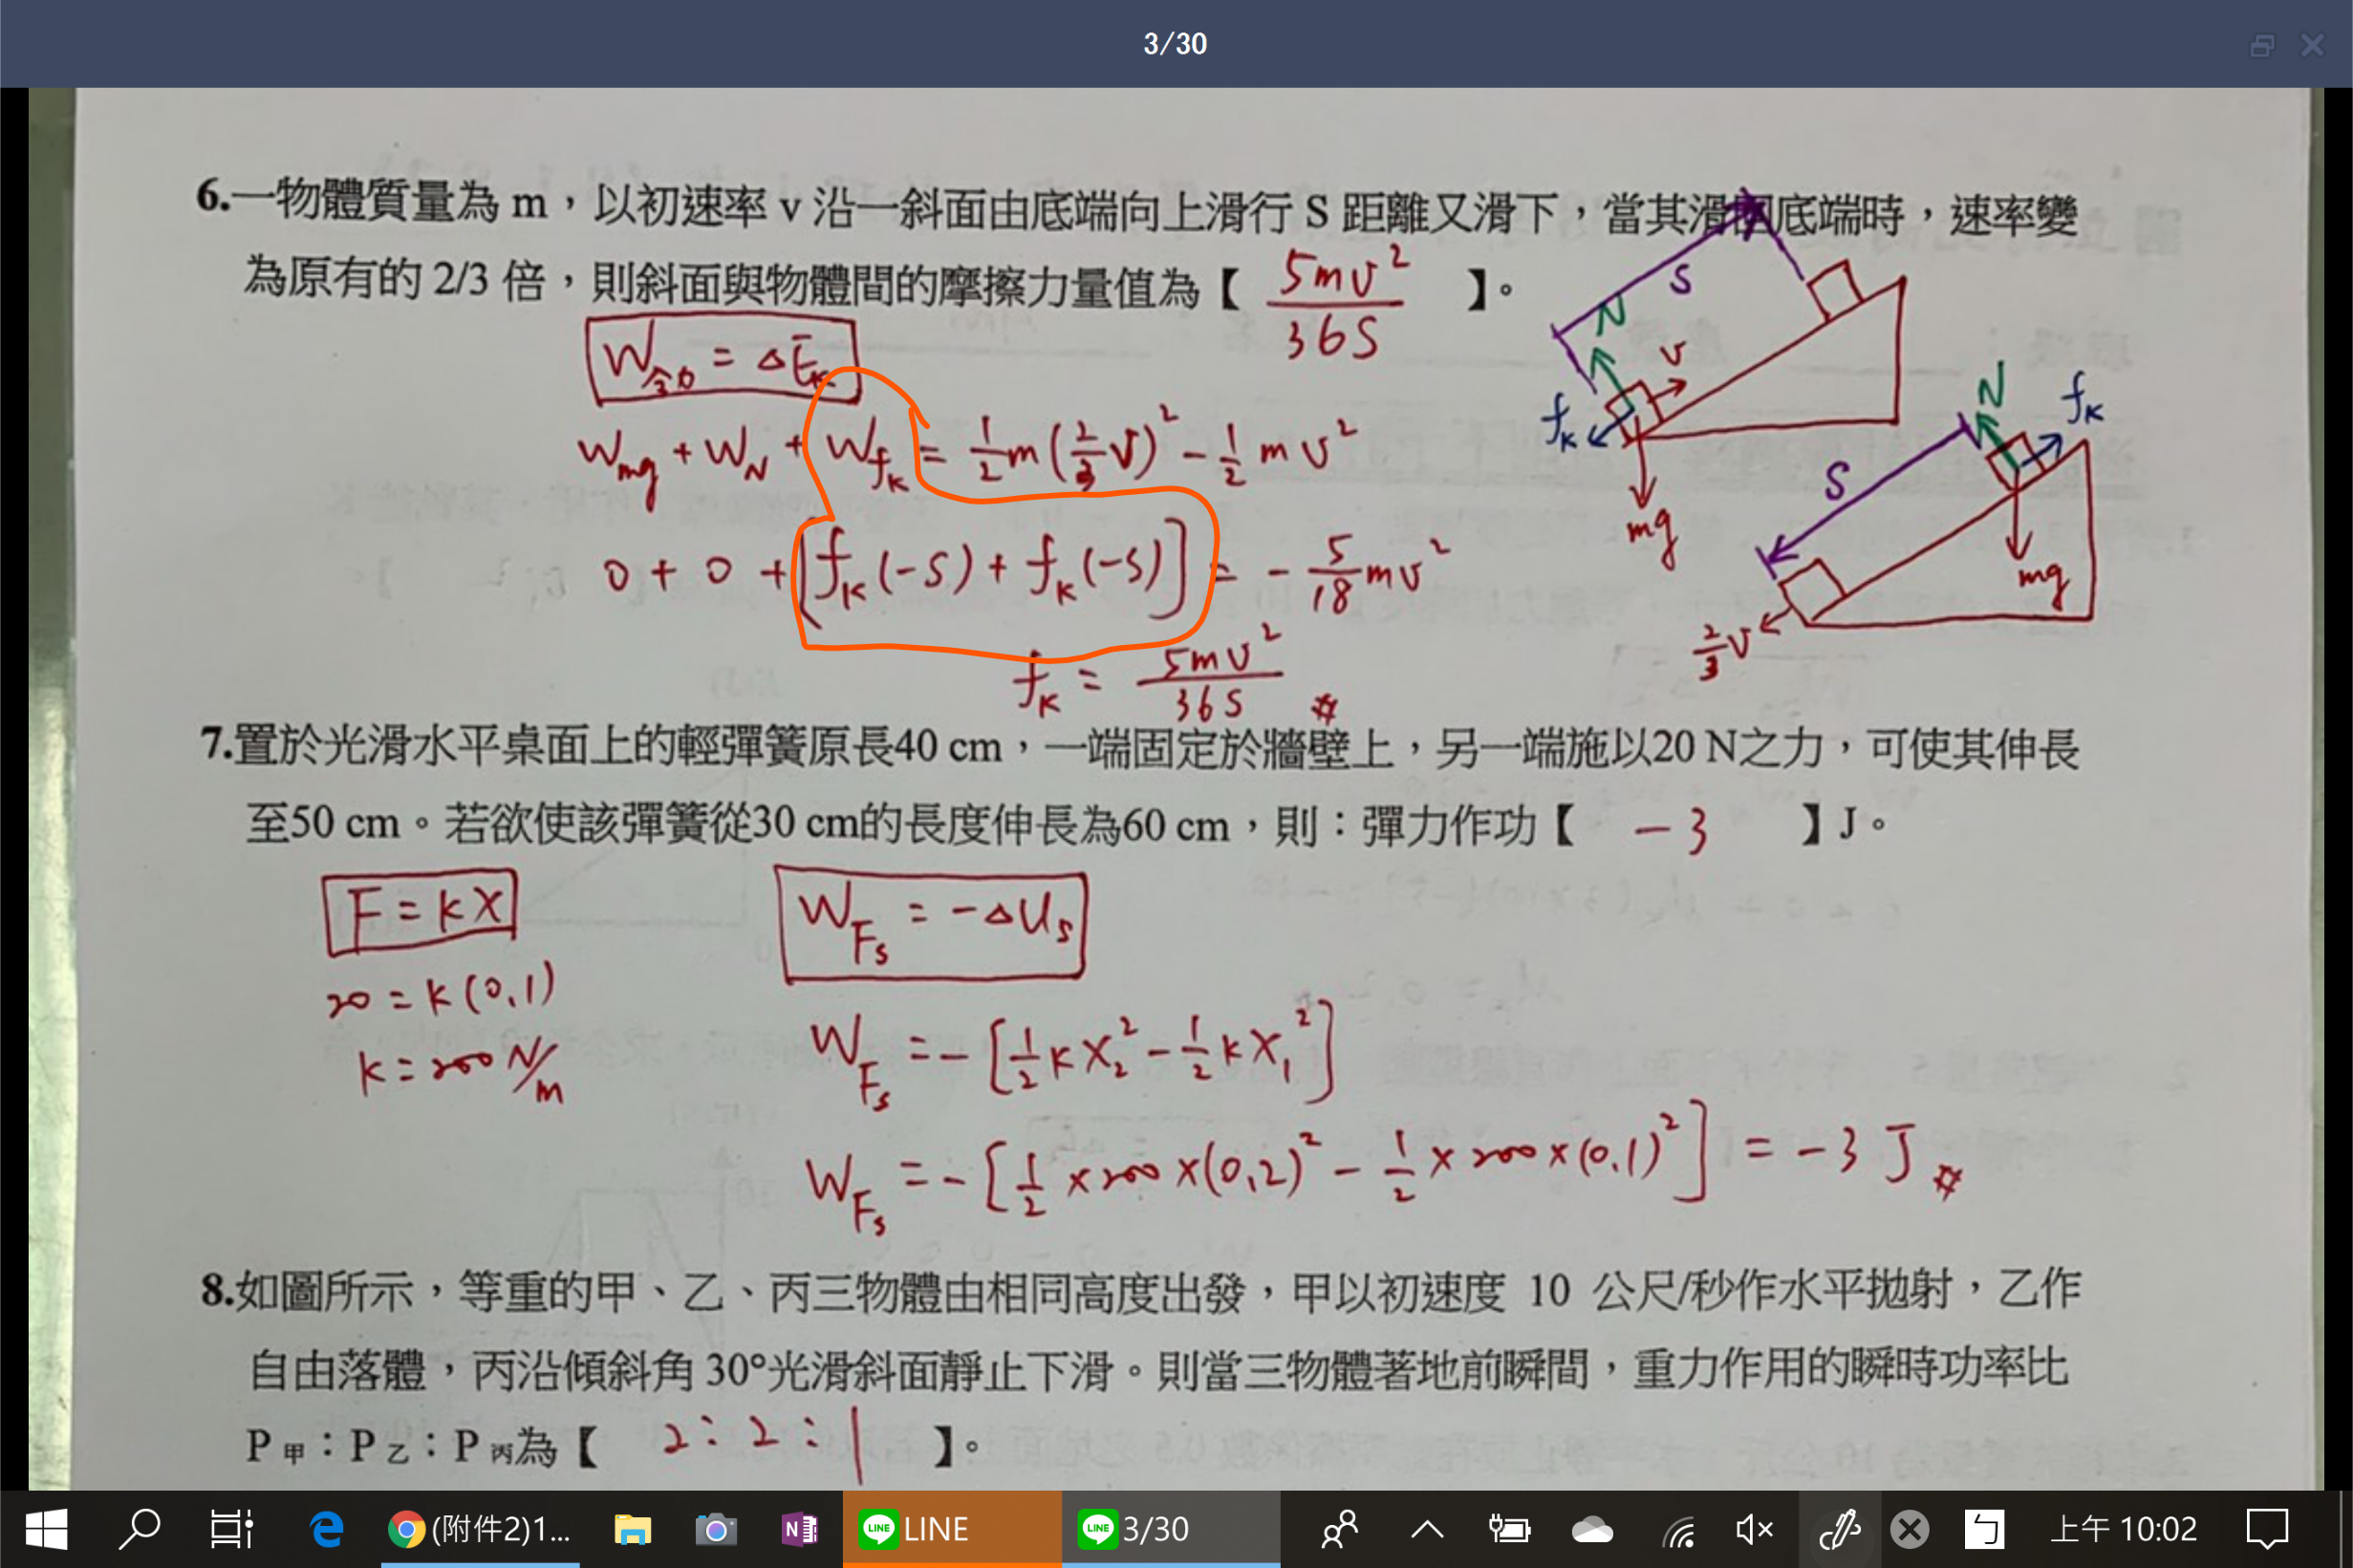 3/30
6.一物體質量為 m，以初速率 v 沿一斜面由底端向上滑行 S 距離又滑下，當其滑回底端時，速率變
為原有的 2/3 倍，則斜面與物體間的摩擦力量值為【 5mv²/36S 】。
W合力 = ΔEk
Wmg + WN + Wfk = 1/2 m(2/3 v)² - 1/2 mv²
0 + 0 + [fk(-S) + fk(-S)] = - 5/18 mv²
fk = 5mv²/36S #
S
N
v
fk
mg
N
fk
S
mg
2/3 v
7.置於光滑水平桌面上的輕彈簧原長40 cm，一端固定於牆壁上，另一端施以20 N之力，可使其伸長
至50 cm。若欲使該彈簧從30 cm的長度伸長為60 cm，則：彈力作功【 -3 】J。
F = kx
20 = k(0.1)
k = 200 N/m
WFs = -ΔUs
WFs = -[1/2 kx₂² - 1/2 kx₁²]
WFs = -[1/2 × 200 × (0.2)² - 1/2 × 200 × (0.1)²] = -3 J #
8.如圖所示，等重的甲、乙、丙三物體由相同高度出發，甲以初速度 10 公尺/秒作水平拋射，乙作
自由落體，丙沿傾斜角 30°光滑斜面靜止下滑。則當三物體著地前瞬間，重力作用的瞬時功率比
P甲：P乙：P丙為【 2:2:1 】。
(附件2)1...
LINE
3/30
ㄅ
上午 10:02